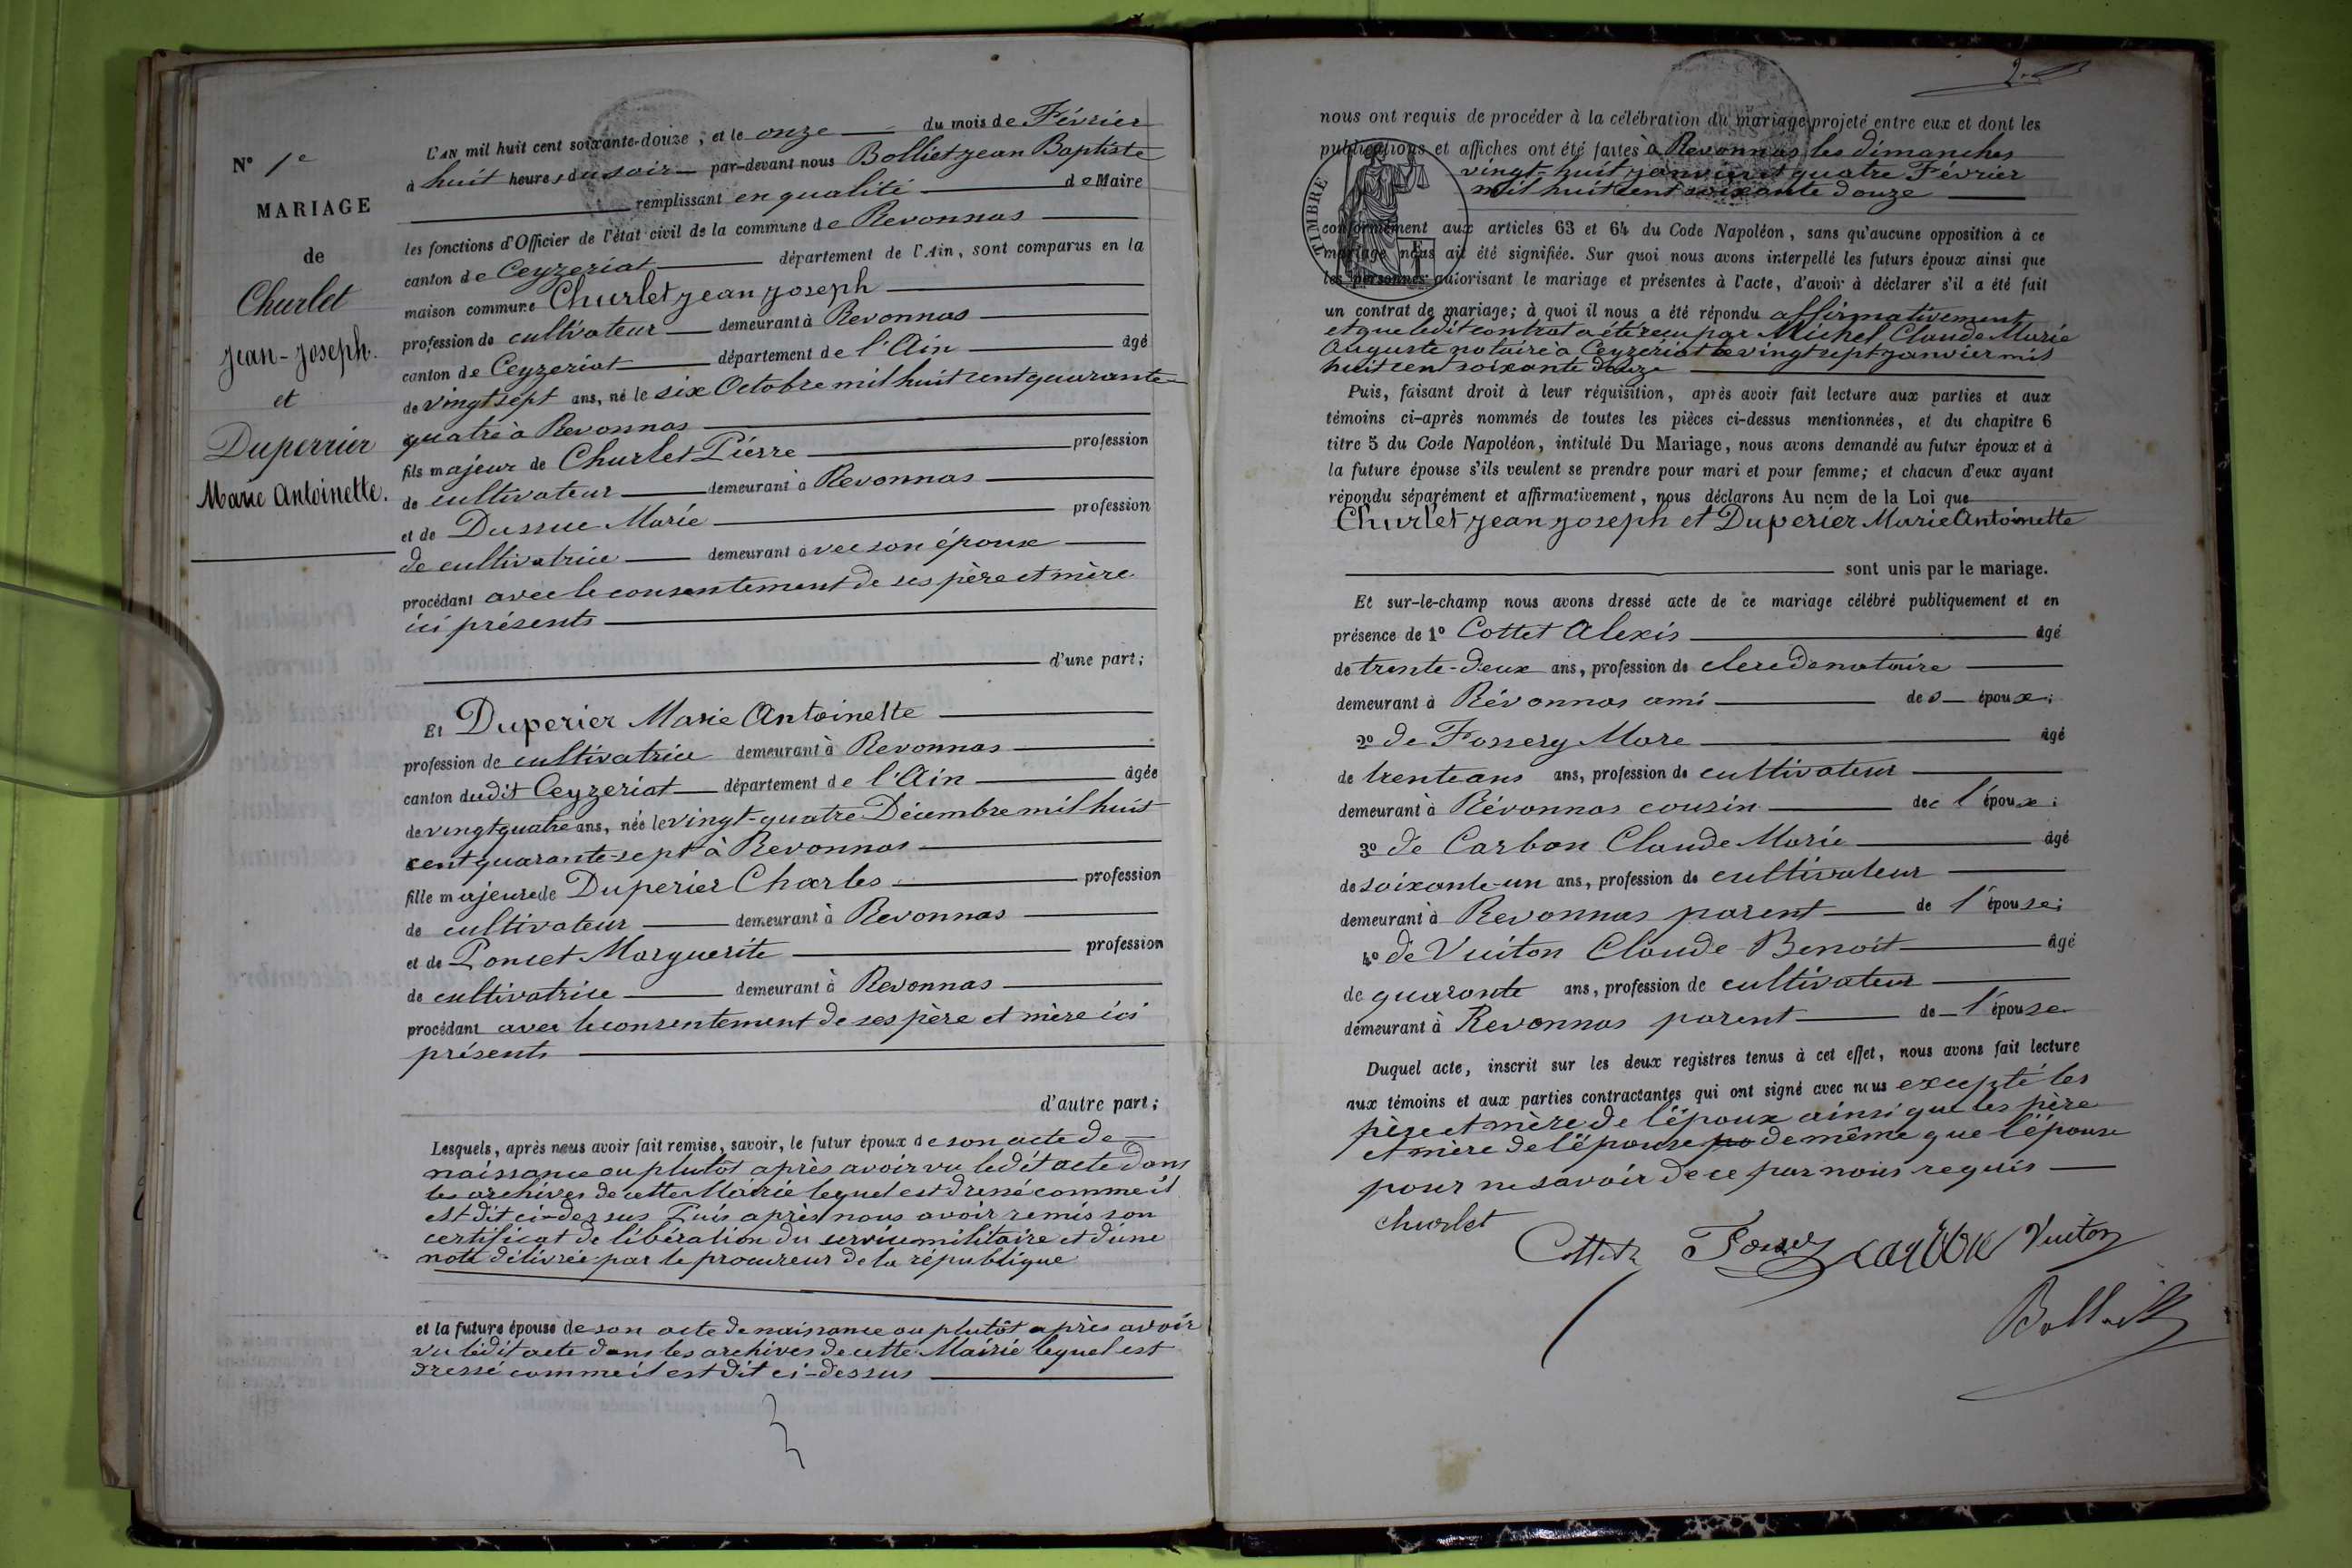 N° 1e
MARIAGE
de
Churlet
Jean-Joseph.
et
Duperrier
Marie Antoinette.
L'AN mil huit cent soixante-douze, et le onze du mois de Février
à huit heures du soir par-devant nous Bolliet Jean Baptiste
remplissant en qualité de Maire
les fonctions d'Officier de l'état civil de la commune de Revonnas
canton de Ceyzeriat département de l'Ain, sont comparus en la
maison commune Churlet Jean Joseph
profession de cultivateur demeurant à Revonnas
canton de Ceyzeriat département de l'Ain âgé
de vingt sept ans, né le six Octobre mil huit cent quarante
quatre à Revonnas
fils majeur de Churlet Pierre profession
de cultivateur demeurant à Revonnas
et de Dussue Marie profession
de cultivatrice demeurant avec son époux
procédant avec le consentement de ses père et mère
ici présents
d'une part;
Et Duperier Marie Antoinette
profession de cultivatrice demeurant à Revonnas
canton dudit Ceyzeriat département de l'Ain âgée
de vingt quatre ans, née le vingt-quatre Décembre mil huit
cent quarante-sept à Revonnas
fille majeure de Duperier Charles profession
de cultivateur demeurant à Revonnas
et de Poncet Marguerite profession
de cultivatrice demeurant à Revonnas
procédant avec le consentement de ses père et mère ici
présents
d'autre part;
Lesquels, après nous avoir fait remise, savoir, le futur époux de son acte de
naissance ou plutôt après avoir vu ledit acte dans
les archives de cette Mairie lequel est dressé comme il
est dit ci-dessus Puis après nous avoir remis son
certificat de libération du service militaire et d'une
note délivrée par le procureur de la république
et la future épouse de son acte de naissance ou plutôt après avoir
vu ledit acte dans les archives de cette Mairie lequel est
dressé comme il est dit ci-dessus
2.
nous ont requis de procéder à la célébration du mariage projeté entre eux et dont les
publications et affiches ont été faites à Revonnas les dimanches
vingt-huit janvier et quatre Février
mil huit cent soixante douze
TIMBRE
conformément aux articles 63 et 64 du Code Napoléon, sans qu'aucune opposition à ce
mariage nous ait été signifiée. Sur quoi nous avons interpellé les futurs époux ainsi que
les personnes autorisant le mariage et présentes à l'acte, d'avoir à déclarer s'il a été fait
un contrat de mariage; à quoi il nous a été répondu affirmativement
et que ledit contrat a été reçu par Michel Claude Marie
Auguste notaire à Ceyzériat le vingt sept janvier mil
huit cent soixante douze
Puis, faisant droit à leur réquisition, après avoir fait lecture aux parties et aux
témoins ci-après nommés de toutes les pièces ci-dessus mentionnées, et du chapitre 6
titre 5 du Code Napoléon, intitulé Du Mariage, nous avons demandé au futur époux et à
la future épouse s'ils veulent se prendre pour mari et pour femme; et chacun d'eux ayant
répondu séparément et affirmativement, nous déclarons Au nom de la Loi que
Churlet Jean Joseph et Duperier Marie Antoinette
sont unis par le mariage.
Et sur-le-champ nous avons dressé acte de ce mariage célébré publiquement et en
présence de 1° Cottet Alexis âgé
de trente-deux ans, profession de clerc de notaire
demeurant à Révonnas ami des époux;
2° de Fossery Marc âgé
de trente ans ans, profession de cultivateur
demeurant à Révonnas cousin de l'époux;
3° de Carbon Claude Marie âgé
de soixante-un ans, profession de cultivateur
demeurant à Revonnas parent de l'épouse;
4° de Vuiton Claude Benoit âgé
de quaronte ans, profession de cultivateur
demeurant à Revonnas parent de l'épouse
Duquel acte, inscrit sur les deux registres tenus à cet effet, nous avons fait lecture
aux témoins et aux parties contractantes qui ont signé avec nous excepté les
père et mère de l'époux ainsi que les père
et mère de l'épouse de même que l'épouse
pour ne savoir de ce par nous requis
Churlet
Cottet Carbon Vuiton